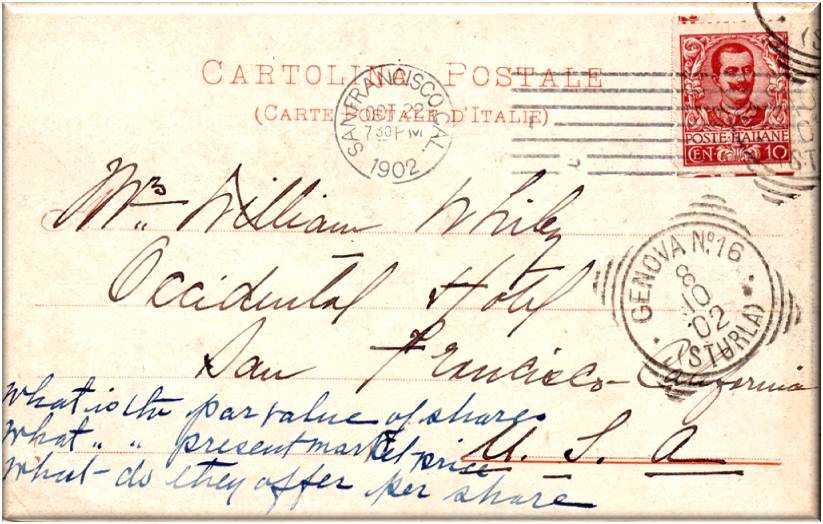 CARTOLINA POSTALE
(CARTE POSTALE D'ITALIE)
SAN FRANCISCO, CAL.
OCT 22
7 30 PM
1902
POSTE ITALIANE
CEN 10
Mrs William Whiley
Occidental Hotel
San Francisco - California
U. S. A
GENOVA Nº 16
8
10
02
(STURLA)
what is the par value of shares
what " " present market price
what - do they offer per share